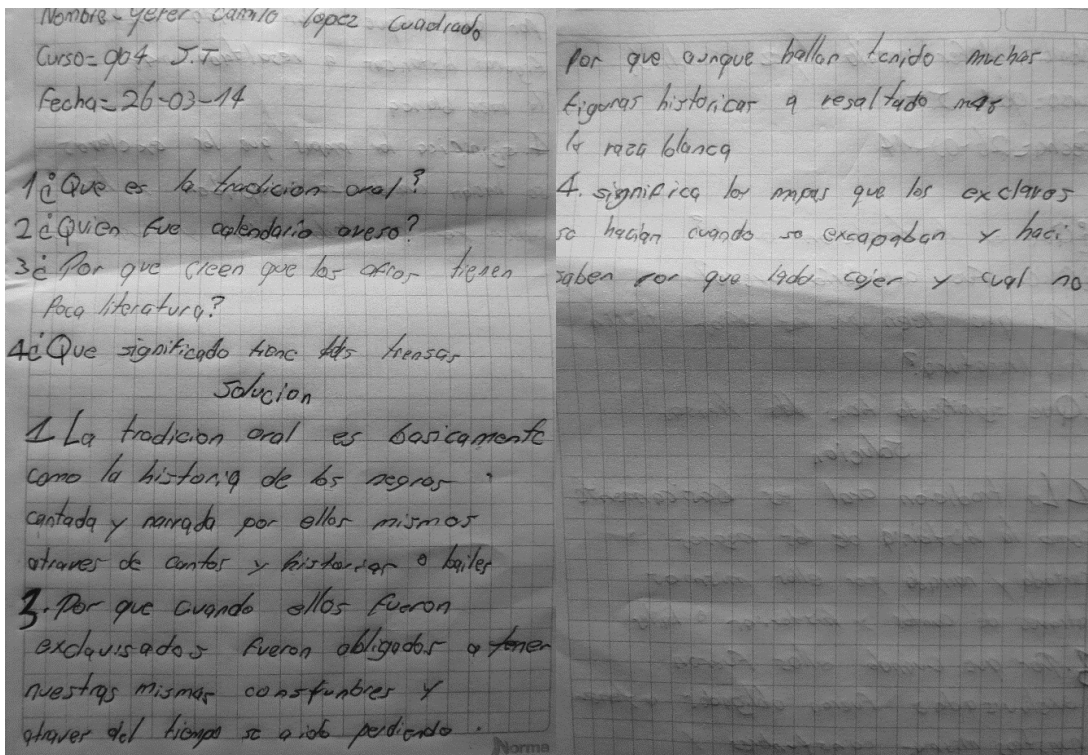 Nombre= yefer camilo lopez cuadrado
Curso= 904 J.T
Fecha= 26-03-14
1 ¿Que es la tradicion oral?
2 ¿Quien fue calendario oveso?
3 ¿Por que creen que los afros tienen
Poca literatura?
4 ¿Que significado tiene las trensas
Solucion
1 La tradicion oral es basicamente
como la historia de los negros
cantada y narrada por ellos mismos
atraves de cantos y historias o bailes
3. Por que cuando ellos fueron
exclavisados fueron obligados a tener
nuestras mismas constunbres y
atraves del tiempo se a ido perdiendo.
Norma
Por que aunque hallan tenido muchas
figuras historicas a resaltado mas
la raza blanca
4. significa los mapas que los exclavos
se hacian cuando se excapaban y haci
saben por que lado cojer y cual no